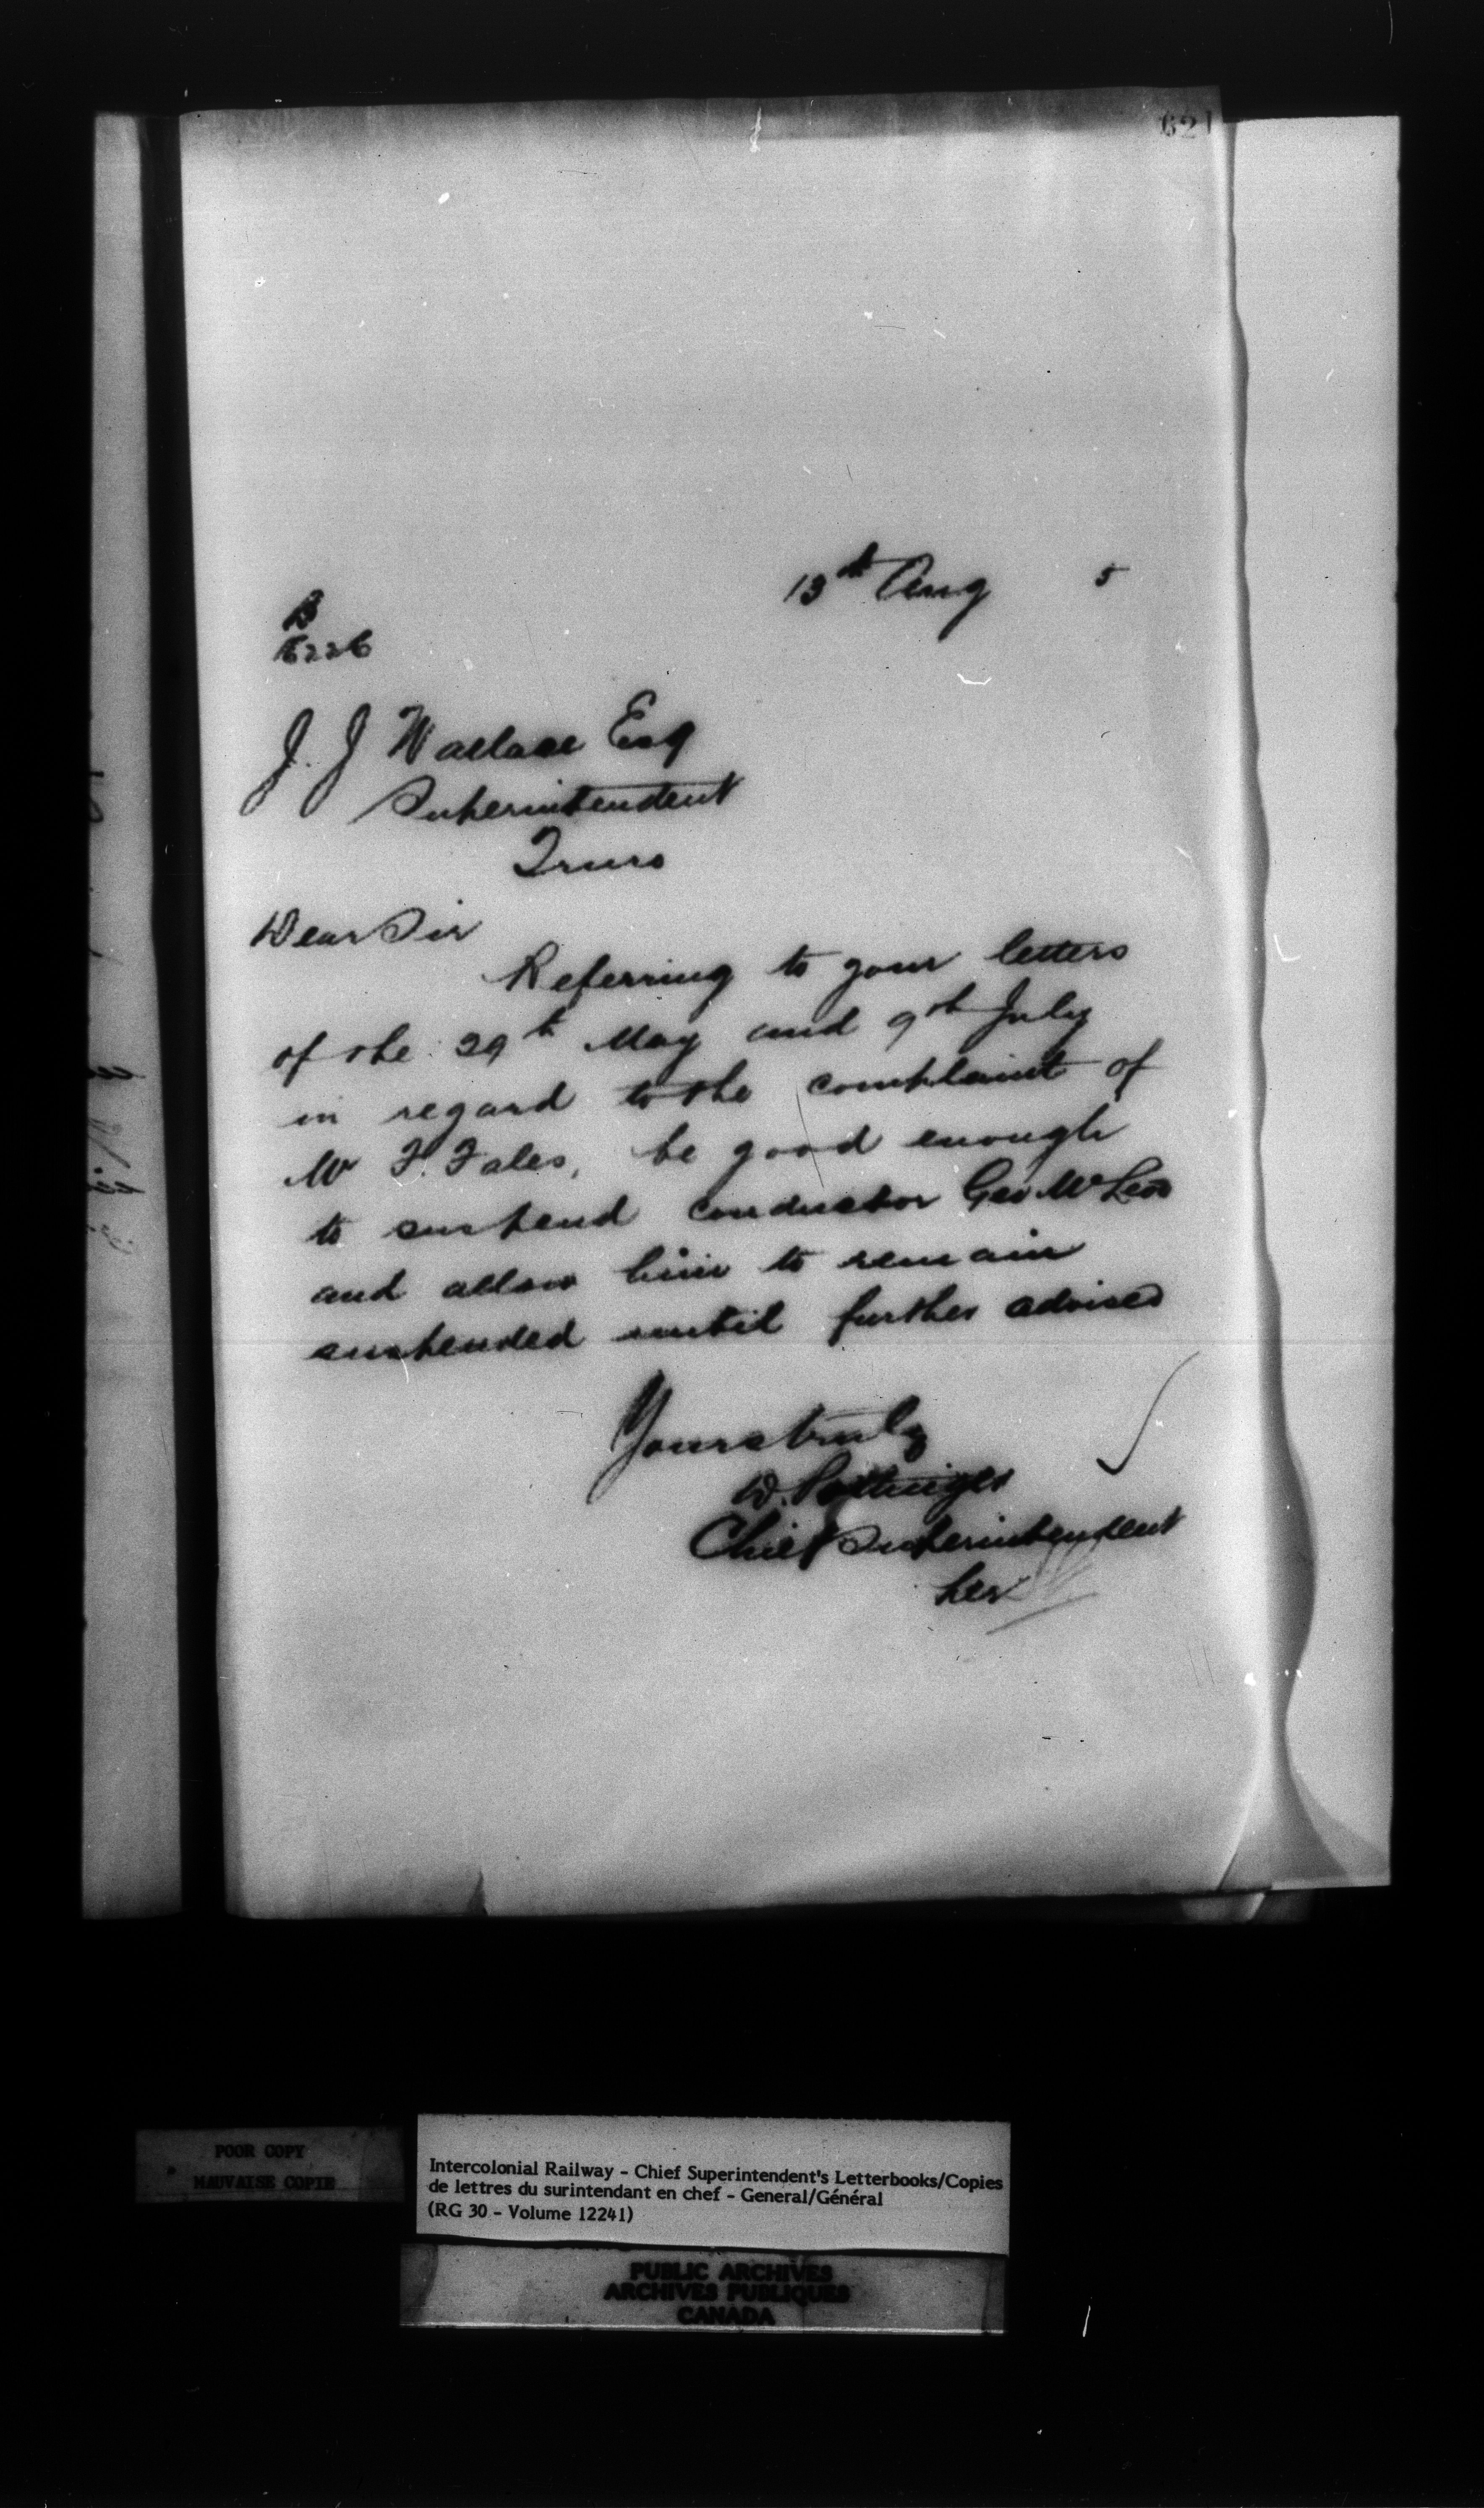 621
13th Aug 5
B
6226
J. J Wallace Esq
Superintendent
Truro
Dear Sir
Referring to your letters
of the 29th May and 9th July
in regard to the complaint of
Mr F. Fales, be good enough
to suspend conductor Geo McLeod
and allow him to remain
suspended until further advised
Yours truly
D. Pottinger
Chief Superintendent
POOR COPY
MAUVAISE COPIE
Intercolonial Railway - Chief Superintendent's Letterbooks/Copies
de lettres du surintendant en chef - General/Général
(RG 30 - Volume 12241)
PUBLIC ARCHIVES
ARCHIVES PUBLIQUES
CANADA